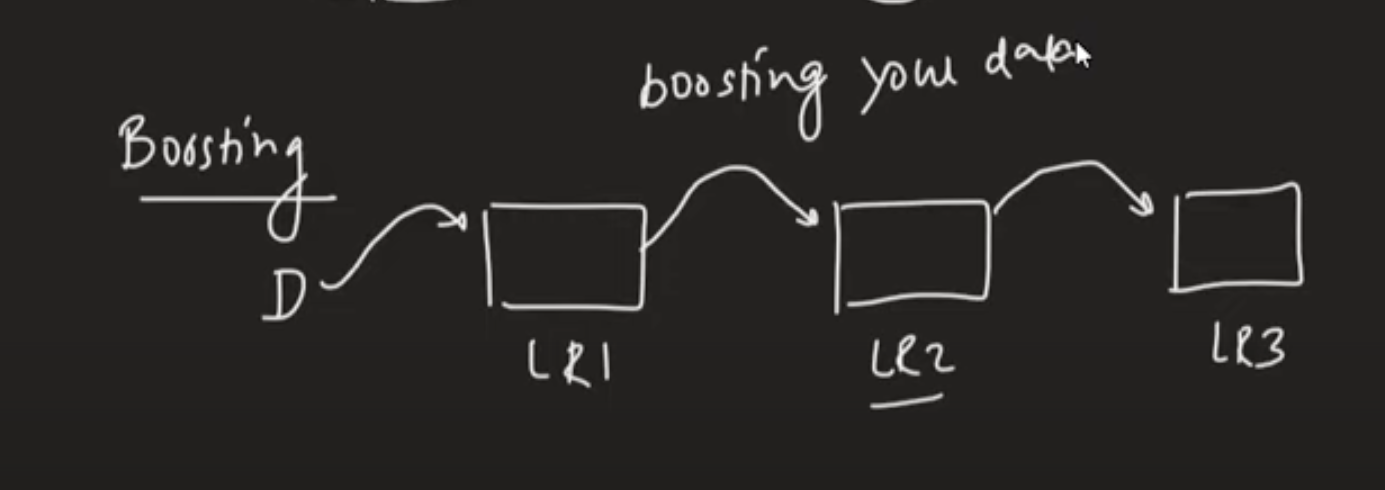 boosting your data
Boosting
D
LR1
LR2
LR3